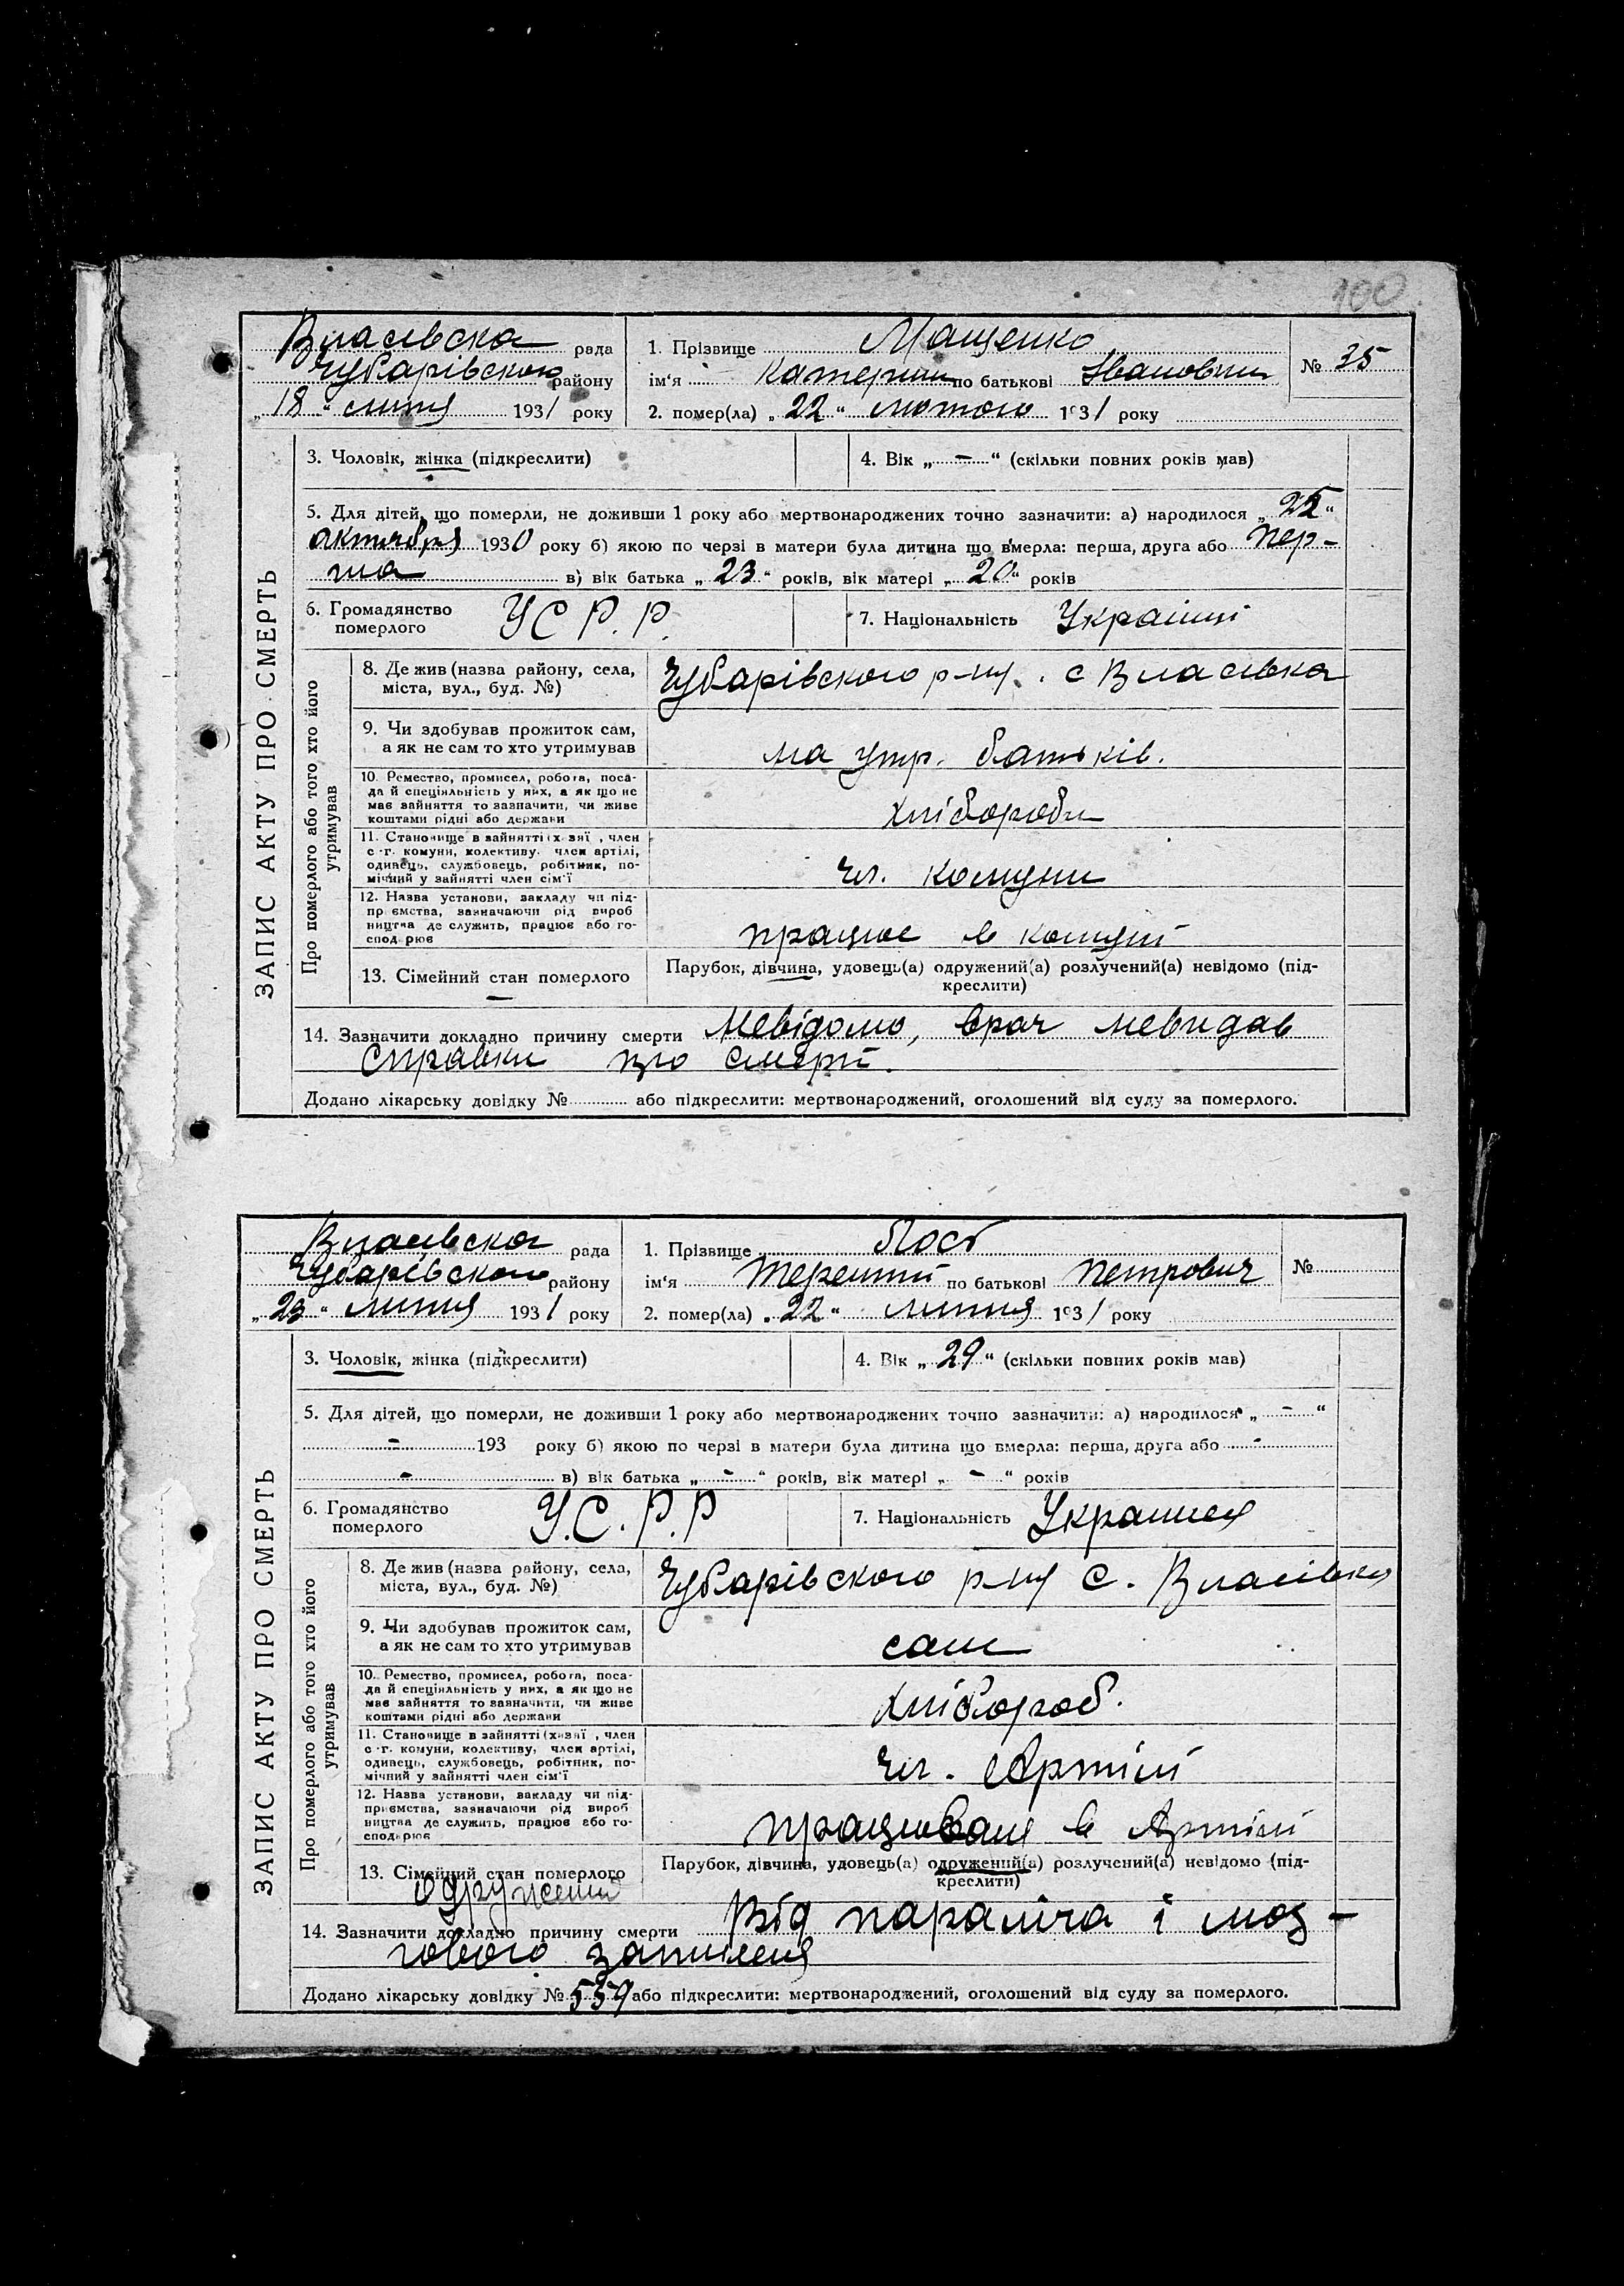 100
Власівска рада
Чубарівского району
„18“ липня 1931 року
1. Прізвище Мащенко
№ 35
ім'я Катерини по батькові Івановни
2. помер(ла) „22“ лютого 1931 року
ЗАПИС АКТУ ПРО СМЕРТЬ
3. Чоловік, жінка (підкреслити)
4. Вік „-“ (скільки повних років мав)
5. Для дітей, що померли, не доживши 1 року або мертвонароджених точно зазначити: а) народилося „25“
октября 1930 року б) якою по черзі в матери була дитина що вмерла: перша, друга або пер-
ша в) вік батька „23“ років, вік матері „20“ років
6. Громадянство померлого У С Р. Р.
7. Національність Українці
Про померлого або того хто його утримував
8. Де жив (назва району, села,
міста, вул., буд. №)
Чубарівского р-ну. с Власівка
9. Чи здобував прожиток сам,
а як не сам то хто утримував
на утр. батьків.
10. Ремество, промисел, робота, поса-
да й спеціяльність у них, а як що не
має зайняття то зазначити, чи живе
коштами рідні або держави
хлібороби
11. Становище в зайнятті (хазяї, член
с.-г. комуни, колективу, член артілі,
одинець, службовець, робітник, по-
мічний у зайнятті член сім'ї
чл. комуни
12. Назва установи, закладу чи під-
приємства, зазначаючи рід вироб
ництва де служить, працює або го-
сподарює
працює в комуні
13. Сімейний стан померлого
Парубок, дівчина, удовець(а) одружений(а) розлучений(а) невідомо (під-
креслити)
14. Зазначити докладно причину смерти Невідомо, врач невидав
справки про смерті.
Додано лікарську довідку № або підкреслити: мертвонароджений, оголошений від суду за померлого.
Власівска рада
Чубарівского району
„23“ липня 1931 року
1. Прізвище Лост
№
ім'я Терентій по батькові Петрович
2. помер(ла) „22“ липня 1931 року
ЗАПИС АКТУ ПРО СМЕРТЬ
3. Чоловік, жінка (підкреслити)
4. Вік „29“ (скільки повних років мав)
5. Для дітей, що померли, не доживши 1 року або мертвонароджених точно зазначити: а) народилося „-“
- 193 року б) якою по черзі в матери була дитина що вмерла: перша, друга або -
- в) вік батька „-“ років, вік матері „-“ років
6. Громадянство померлого У. С. Р. Р
7. Національність Украинец
Про померлого або того хто його утримував
8. Де жив (назва району, села,
міста, вул., буд. №)
Чубарівского р-ну с. Власівка
9. Чи здобував прожиток сам,
а як не сам то хто утримував
сам
10. Ремество, промисел, робота, поса-
да й спеціяльність у них, а як що не
має зайняття то зазначити, чи живе
коштами рідні або держави
хлібороб.
11. Становище в зайнятті (хазяї, член
с.-г. комуни, колективу, член артілі,
одинець, службовець, робітник, по-
мічний у зайнятті член сім'ї
чл. Артілі
12. Назва установи, закладу чи під-
приємства, зазначаючи рід вироб
ництва де служить, працює або го-
сподарює
в Артілі
13. Сімейний стан померлого
одружений
Парубок, дівчина, удовець(а) одружений(а) розлучений(а) невідомо (під-
креслити)
14. Зазначити докладно причину смерти Від параліча і моз-
гового
Додано лікарську довідку № 559 або підкреслити: мертвонароджений, оголошений від суду за померлого.